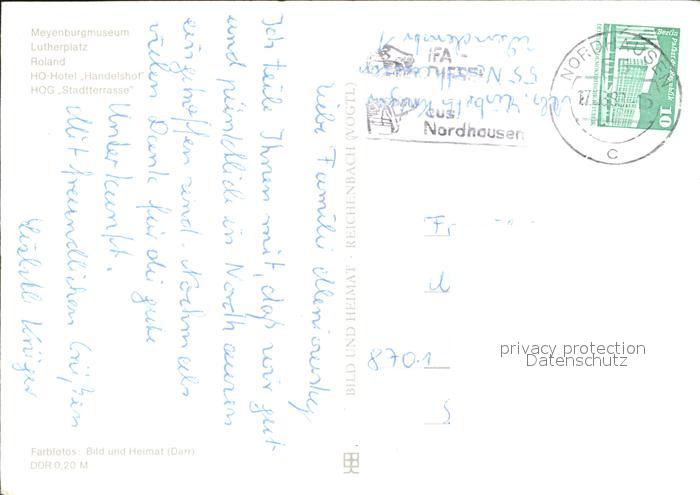 Meyenburgmuseum
Lutherplatz
Roland
HO-Hotel „Handelshof"
HOG „Stadtterrasse"
Liebe Familie
Ich teile Ihnen mit, daß wir gut
und pünktlich in Nordhausen
eingetroffen sind. Nochmals
vielen Dank für die gute
Unterkunft.
Mit freundlichen Grüßen
Krüger
Farbfotos: Bild und Heimat (Darr)
DDR 0,20 M
BILD UND HEIMAT · REICHENBACH (VOGTL)
IFA-
aus
Nordhausen
NORDHAUSEN
c
Berlin
10
55 Nordhausen
F.
8701
privacy protection
Datenschutz